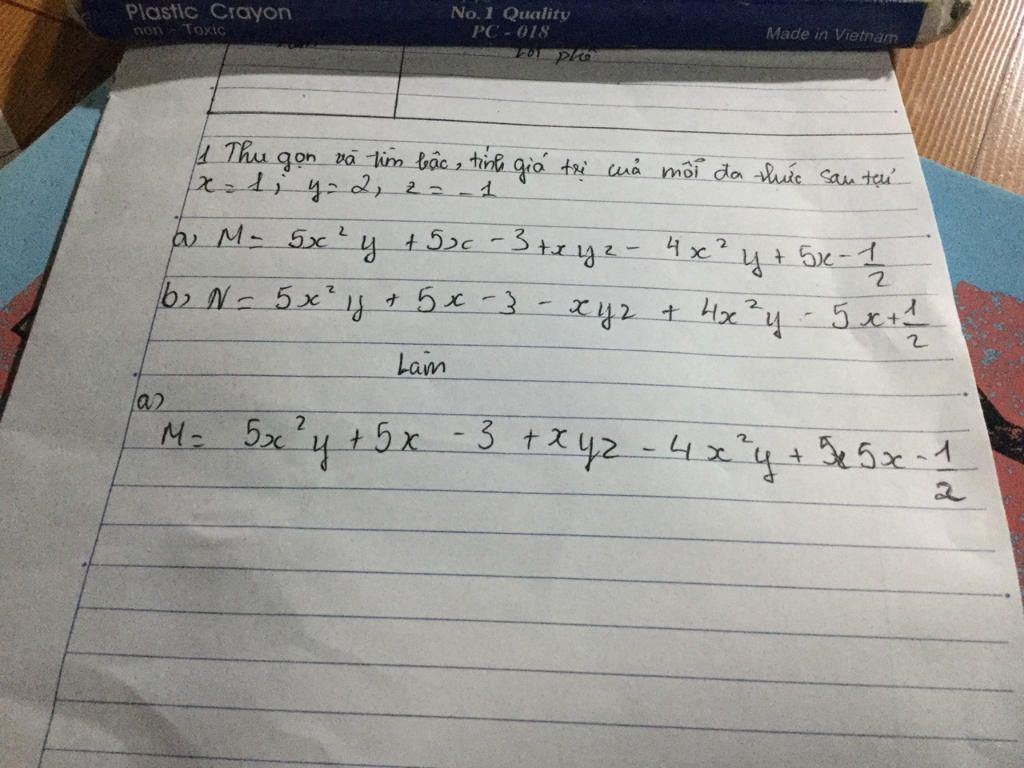 Plastic Crayon
non - Toxic
No.1 Quality
PC - 018
Made in Vietnam
Lời phê
1 Thu gọn và tìm bậc, tính giá trị của mỗi đa thức sau tại
x = 1; y = 2, z = -1
a, M = 5x²y + 5x - 3 + xyz - 4x²y + 5x - 1/2
b, N = 5x²y + 5x - 3 - xyz + 4x²y - 5x + 1/2
Làm
a)
M = 5x²y + 5x - 3 + xyz - 4x²y + 5x - 1/2